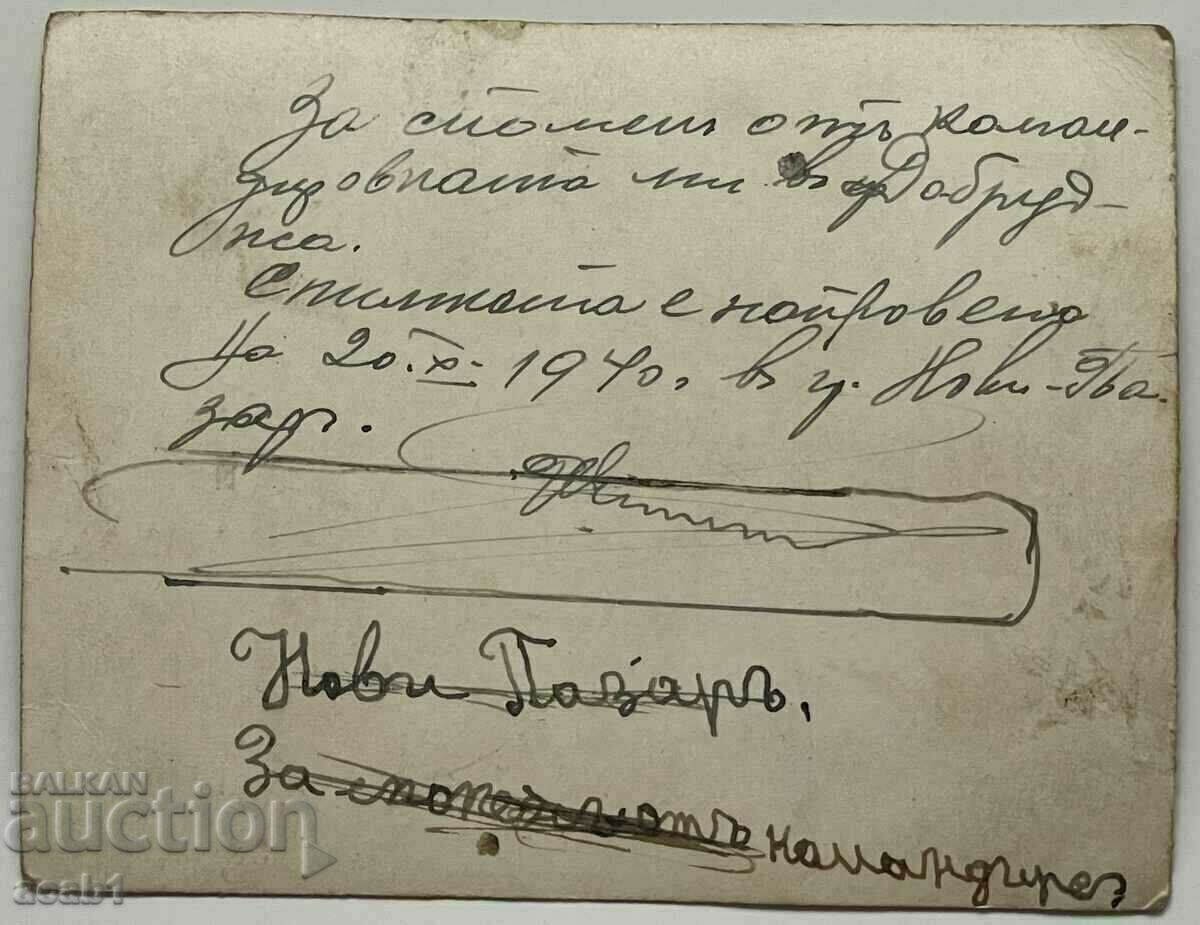 За спомен отъ коман-
дировката ми въ Добруд-
жа.
Снимката е направена
на 20.XI. 1940г. в г. Нови-Па
зар.
Нови Пазаръ.
За отъ командиро
BALKAN
auction
acab1